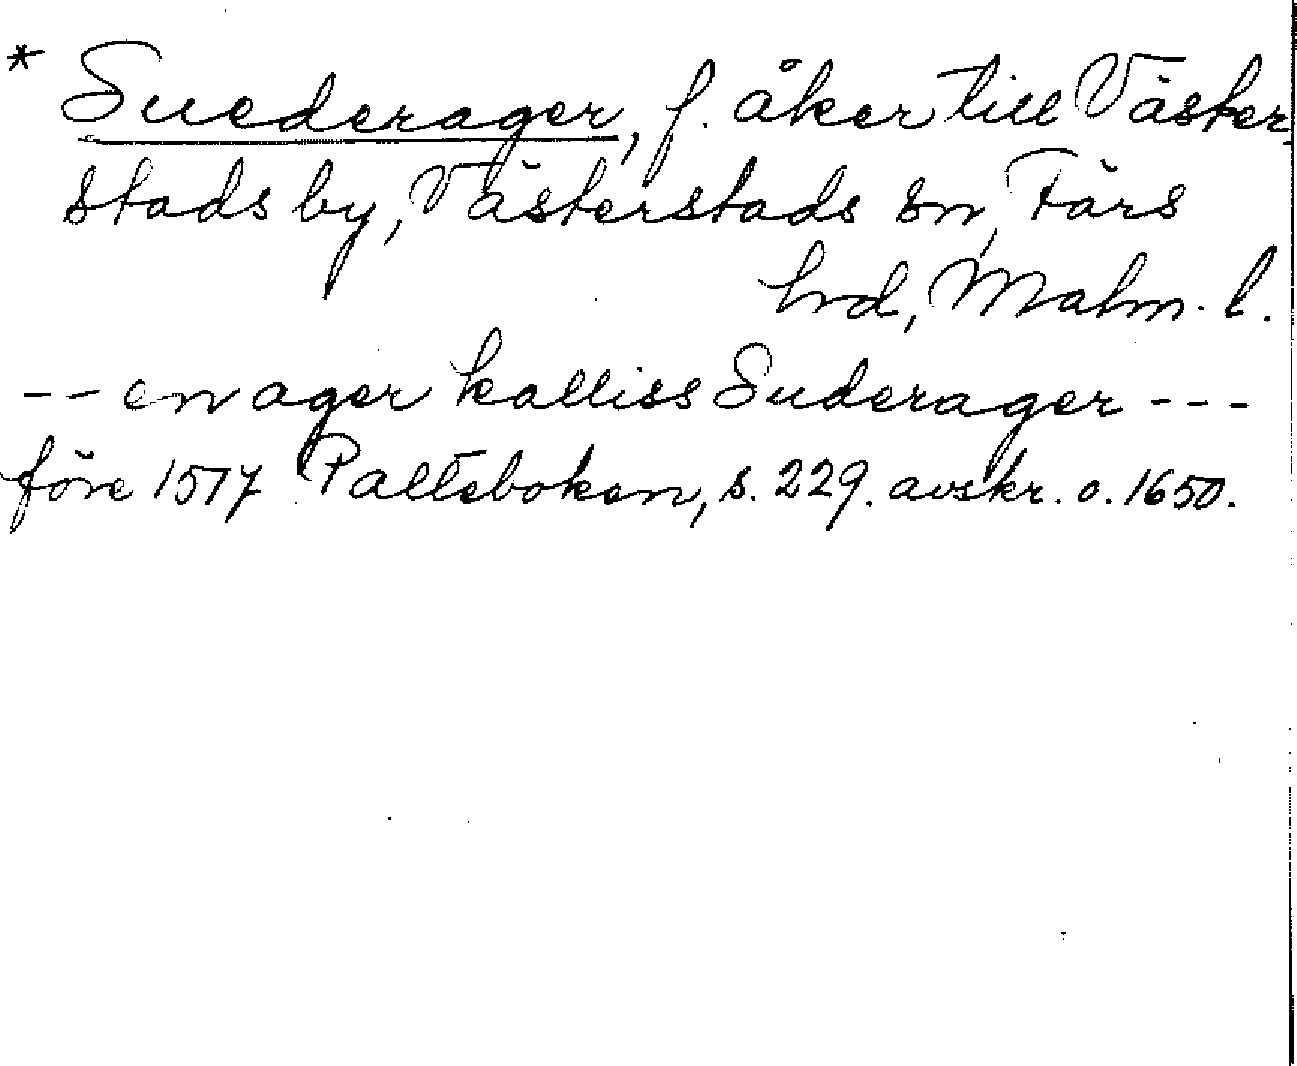 * Suederager, f. åker till Väster-
stads by, Västerstads sn, Färs
hrd, Malm. l.
-- en ager kalliss Suderager ---
före 1517 Palteboken, s. 229. avskr. o. 1650.